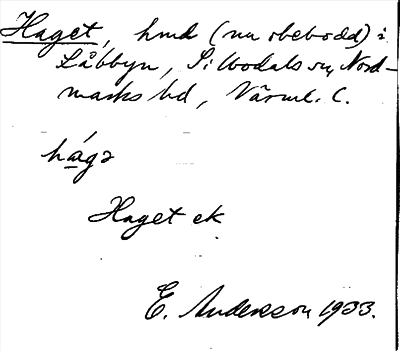 Haget, hmd (nu obebodd) i
Låbbyn, Sillbodals sn, Nord-
marks hd, Värml. l.
hága
Haget ek
E. Andersson 1933.